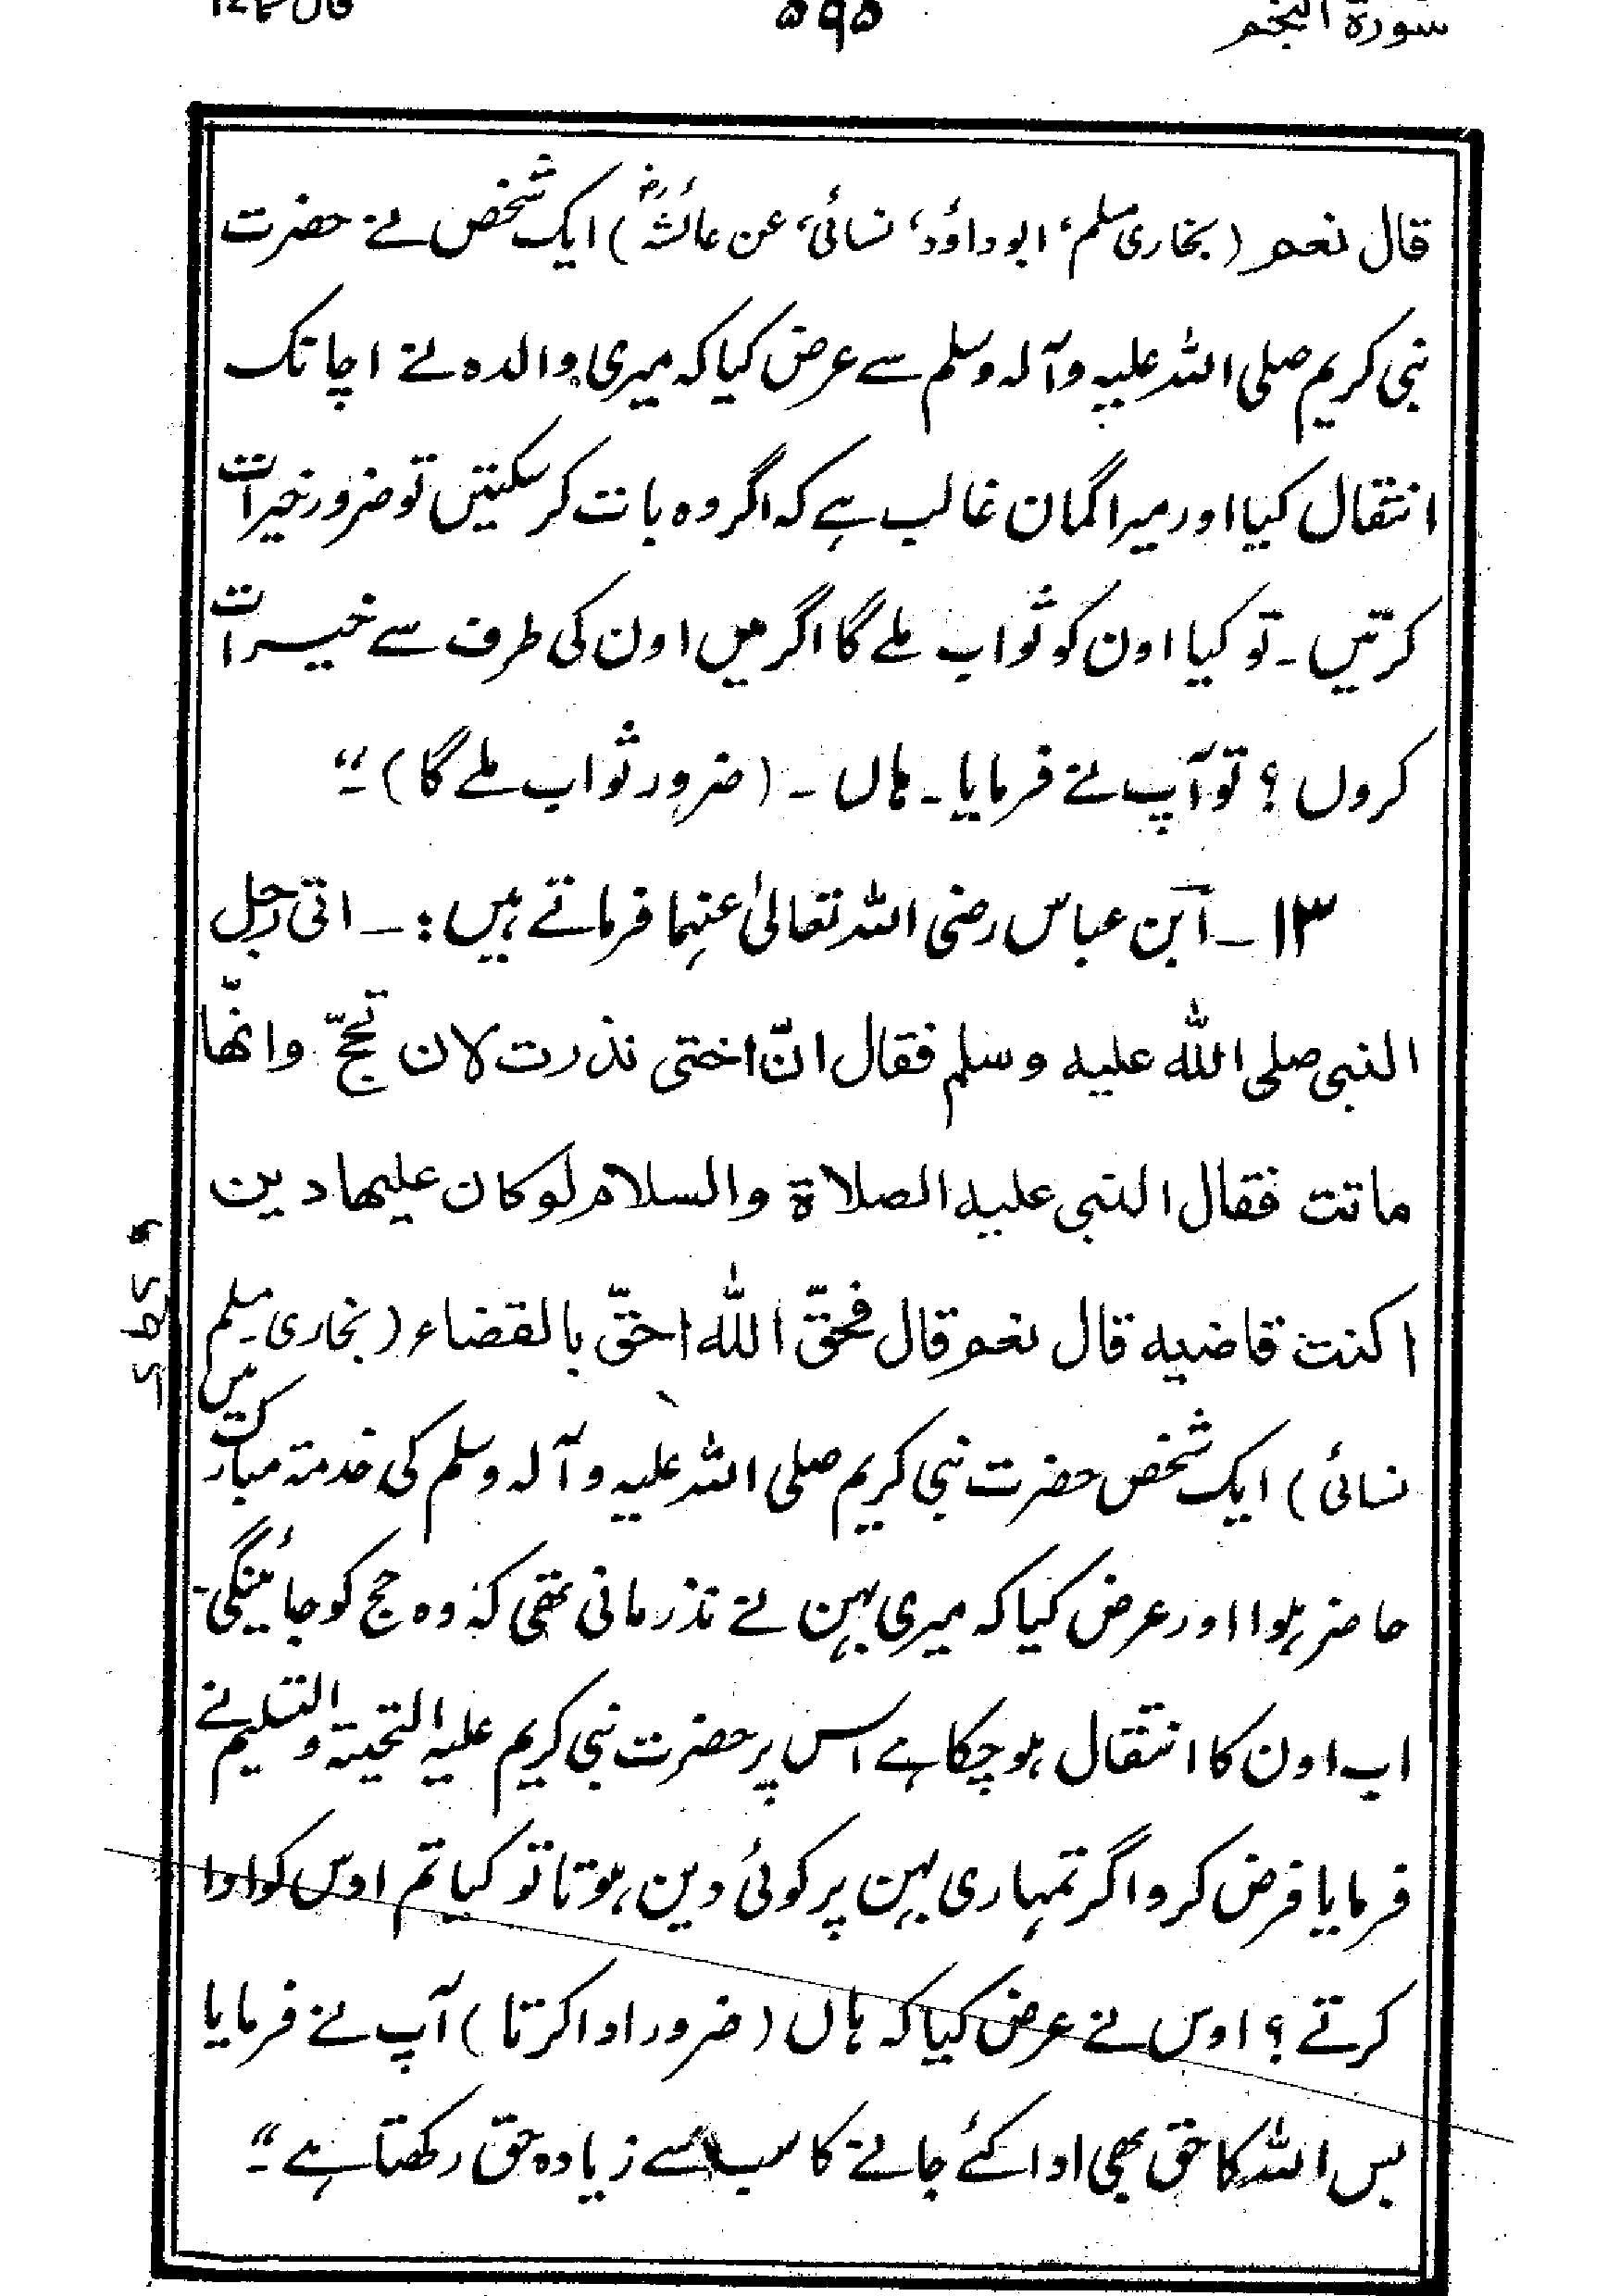 سورۃ النجم ۵۹۵ قال فما ۲۷
قال نعم (بخاری مسلم، ابوداؤد، نسائی، عن عائشہؓ) ایک شخص نے حضرت
نبی کریم صلی اللہ علیہ وآلہ وسلم سے عرض کیا کہ میری والدہ نے اچانک
انتقال کیا اور میرا گمان غالب ہے کہ اگر وہ بات کرسکتیں تو ضرور خیرات
کرتیں۔ تو کیا اون کو ثواب ملے گا اگر میں اون کی طرف سے خیرات
کروں؟ تو آپ نے فرمایا۔ ہاں۔ (ضرور ثواب ملے گا)۔"
۱۳۔ ابن عباس رضی اللہ تعالیٰ عنہما فرماتے ہیں:۔ اتی رجل
النبی صلی اللہ علیہ وسلم فقال انّ اختی نذرت لان تحجّ وانّھا
ماتت فقال النبی علیہ الصلاۃ والسلام لوکان علیھا دین
اکنت قاضیہ قال نعم قال فحقّ اللہ احقّ بالقضاء (بخاری مسلم
نسائی) ایک شخص حضرت نبی کریم صلی اللہ علیہ وآلہ وسلم کی خدمۃ مبارکت میں
حاضر ہوا اور عرض کیا کہ میری بہن نے نذر مانی تھی کہ وہ حج کو جائینگی۔
اب اون کا انتقال ہوچکا ہے اس پر حضرت نبی کریم علیہ التحیۃ والتسلیم نے
فرمایا فرض کرو اگر تمہاری بہن پر کوئی دین ہوتا تو کیا تم اوس کو ادا
کرتے؟ اوس نے عرض کیا کہ ہاں (ضرور ادا کرتا) آپ نے فرمایا
بس اللہ کا حق بھی ادا کئے جانے کا سب سے زیادہ حق رکھتا ہے۔"